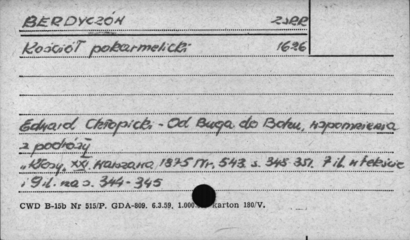 BERDYCZÓW ZSRR
Kościół pokarmelicki 1626
Edward Chłopicki - Od Buga do Bohu, wspomnienia
z podróży
„Kłosy, XXI, Warszawa, 1875 Nr, 543 s. 345 351. 7 il. w tekście
i 9 il. na s. 344-345
CWD B-15b Nr 515/P. GDA-809. 6.3.59, 1.000 karton 180/V.